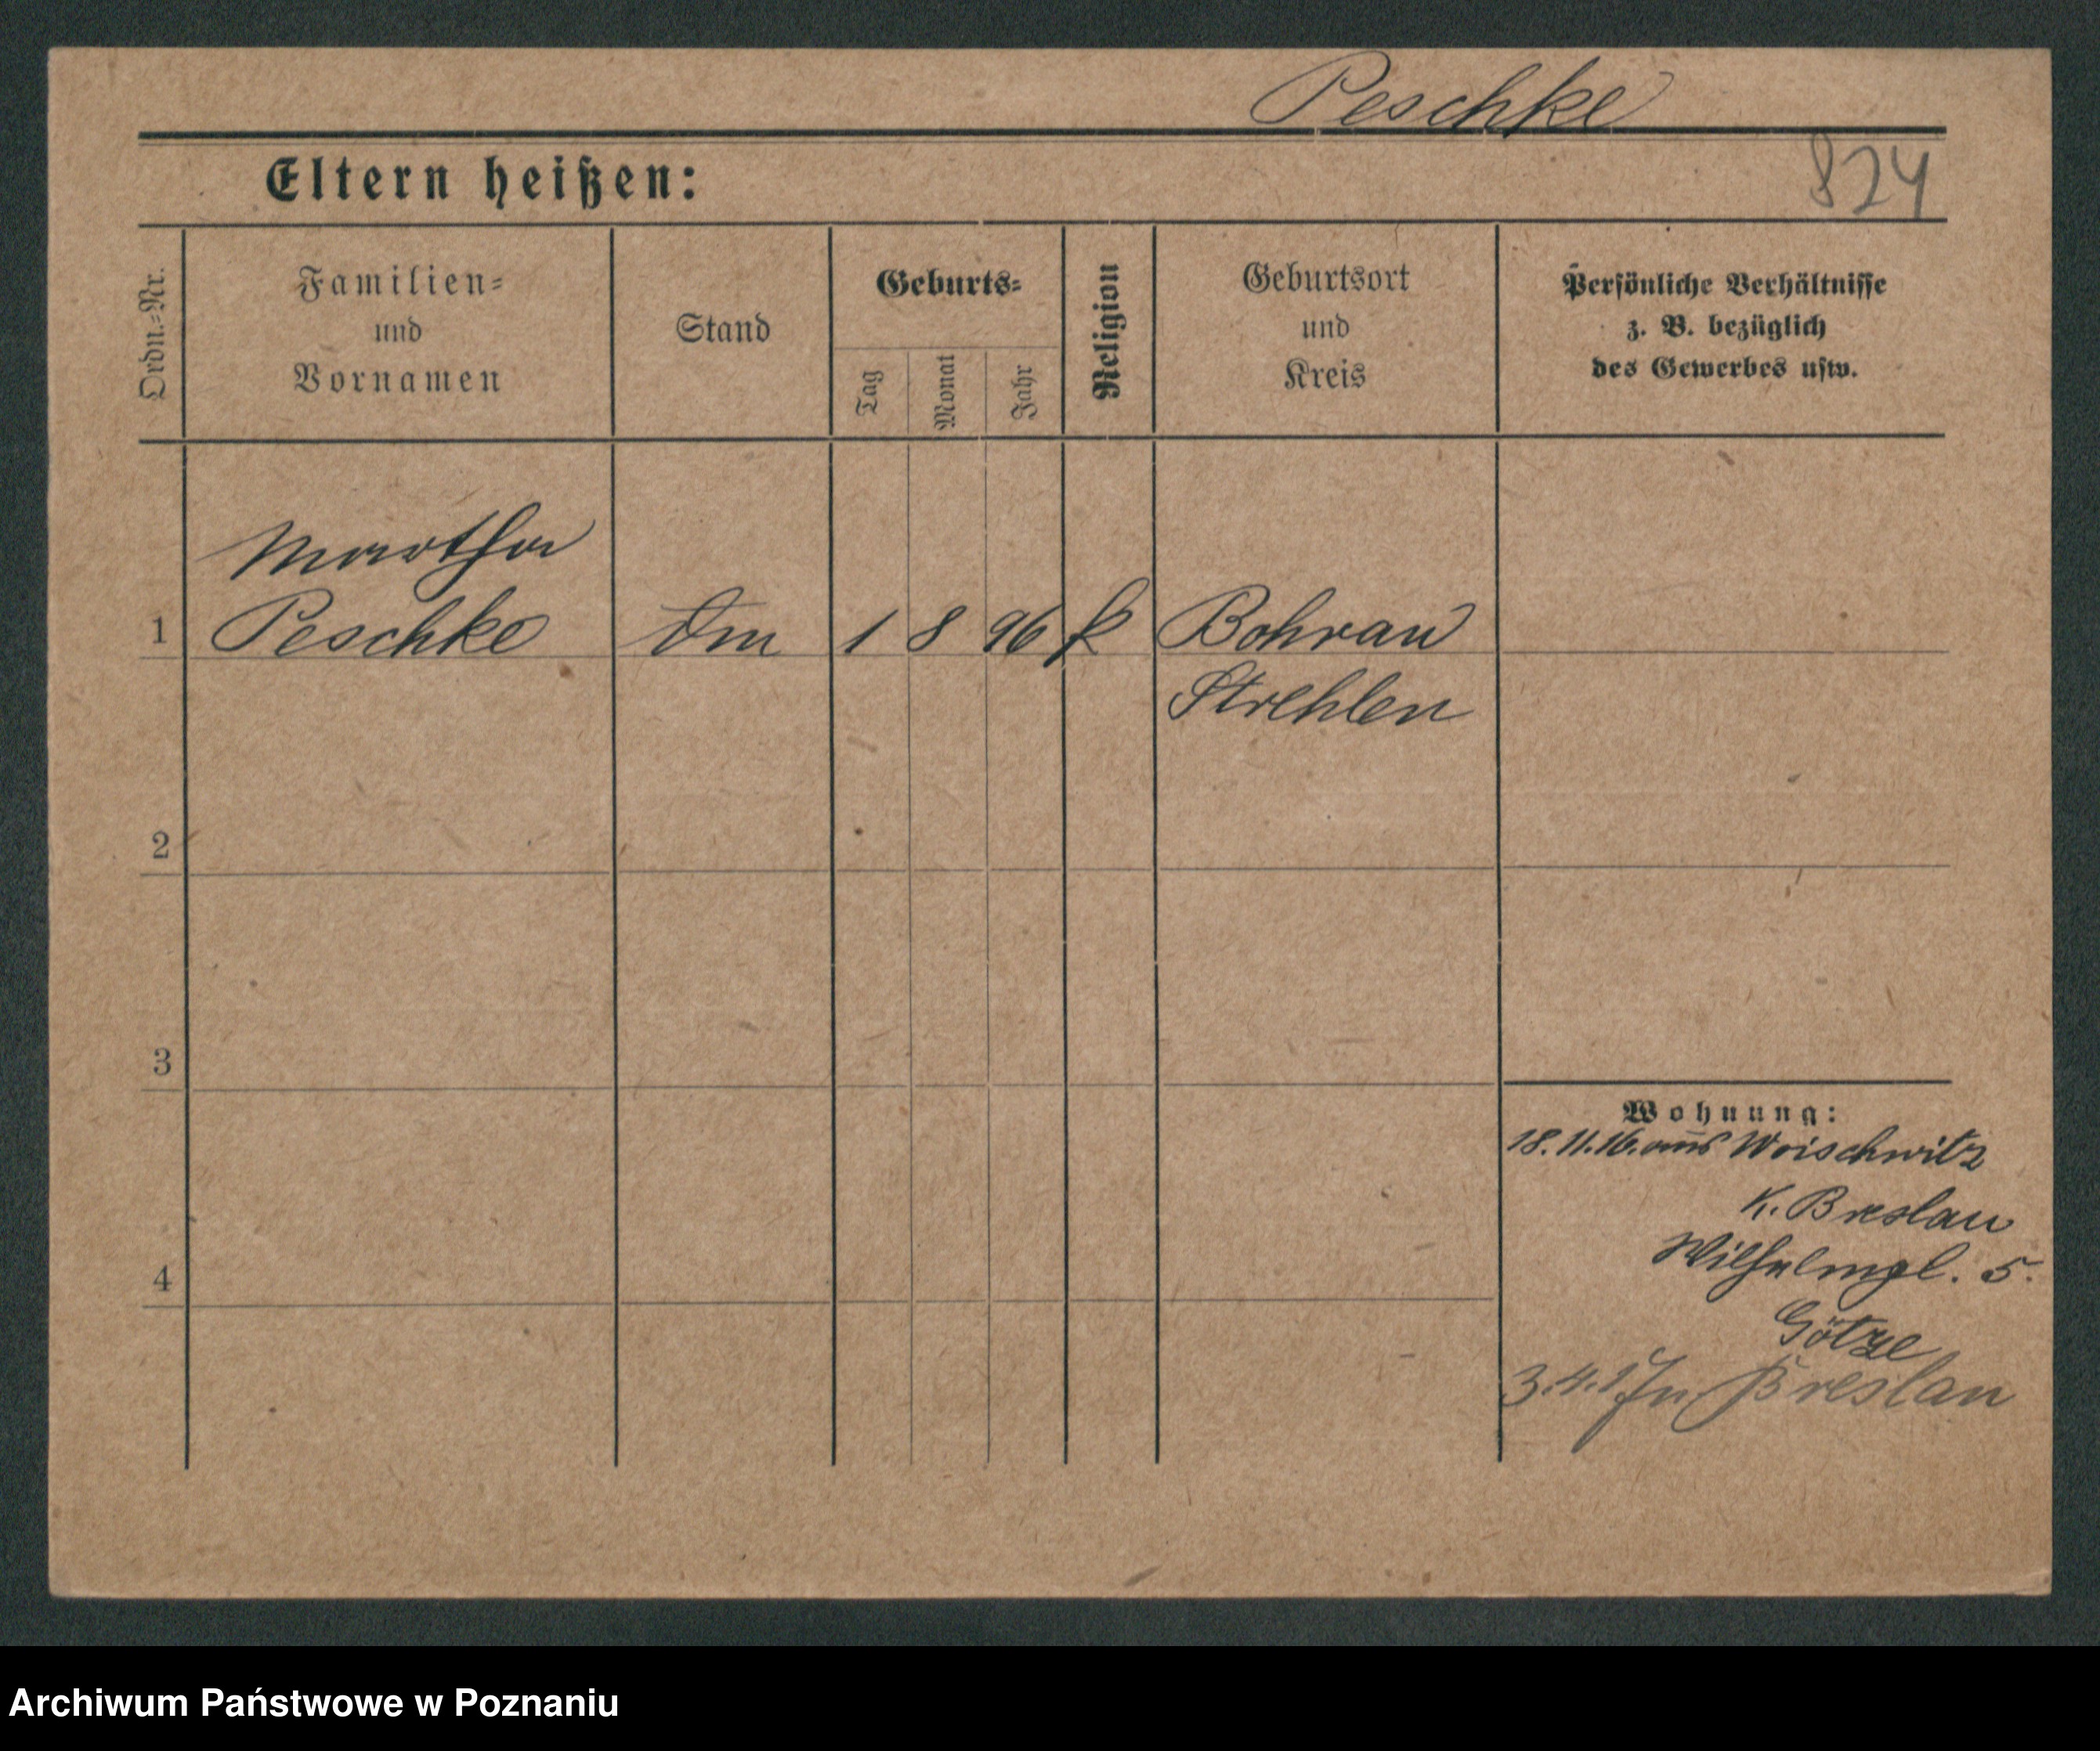 Peschke
Eltern heißen:
824
Ordn.-Nr.
Familien-
und
Vornamen
Stand
Geburts-
Tag
Monat
Jahr
Religion
Geburtsort
und
Kreis
Persönliche Verhältnisse
z. B. bezüglich
des Gewerbes usw.
Martha
1 Peschke 1 8 96 k Bohrau
Strehlen
2
3
4
Wohnung:
18.11.16. aus Woischwitz
K. Breslau
Wilhelmpl. 5.
Götze
3.4.17 n Breslau
Archiwum Państwowe w Poznaniu